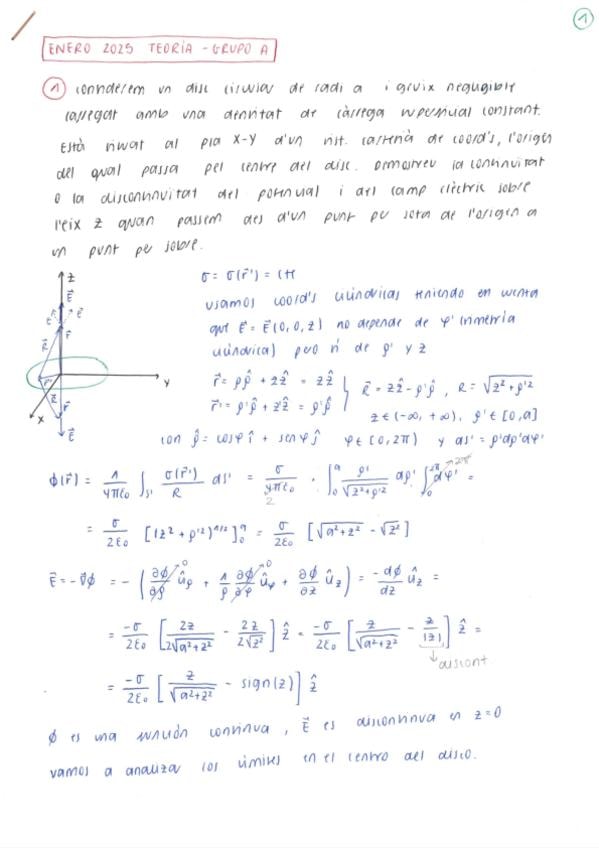 1
ENERO 2025 TEORÍA - GRUPO A
1 considerem un disc circular de radi a i gruix negligible
carregat amb una densitat de càrrega superficial constant.
Està situat al pla X-Y d'un sist. cartesià de coord's, l'origen
del qual passa pel centre del disc. Demostreu la continuïtat
o la discontinuïtat del potencial i del camp elèctric sobre
l'eix Z quan passem des d'un punt per sota de l'origen a
un punt per sobre.
σ = σ(r⃗') = ctt
usamos coord's cilíndricas teniendo en cuenta
que E⃗ = E⃗(0,0,z) no depende de φ' (simetría
cilíndrica) pero sí de ρ' y z
r⃗ = ρρ̂ + zẑ = zẑ
r⃗' = ρ'ρ̂ + z'ẑ = ρ'ρ̂
R⃗ = zẑ - ρ'ρ̂ , R = √(z²+ρ'²)
z ∈ (-∞, +∞), ρ' ∈ [0,a]
con ρ̂ = cosφ î + senφ ĵ φ ∈ [0,2π) y ds' = ρ'dρ'dφ'
z
E⃗
E⃗ E⃗
r⃗
R⃗
r⃗'
Y
X
R⃗
r⃗
E⃗
ϕ(r⃗) = 1/4πε₀ ∫s' σ(r⃗')/R ds' = σ/4πε₀ · ∫₀ᵃ ρ'/√(z²+ρ'²) dρ' ∫₀²π dφ' =
2π
2
= σ/2ε₀ [(z²+ρ'²)^1/2]₀ᵃ = σ/2ε₀ [√(a²+z²) - √z²]
E⃗ = -∇⃗ϕ = - (∂ϕ/∂ρ ûρ + 1/ρ ∂ϕ/∂φ ûφ + ∂ϕ/∂z ûz) = -dϕ/dz ûz =
0 0
= -σ/2ε₀ [2z/2√(a²+z²) - 2z/2√z²] ẑ = -σ/2ε₀ [z/√(a²+z²) - z/|z|] ẑ =
↓ discont
= -σ/2ε₀ [z/√(a²+z²) - sign(z)] ẑ
ϕ es una función continua, E⃗ es discontinua en z=0
vamos a analizar los límites en el centro del disco.